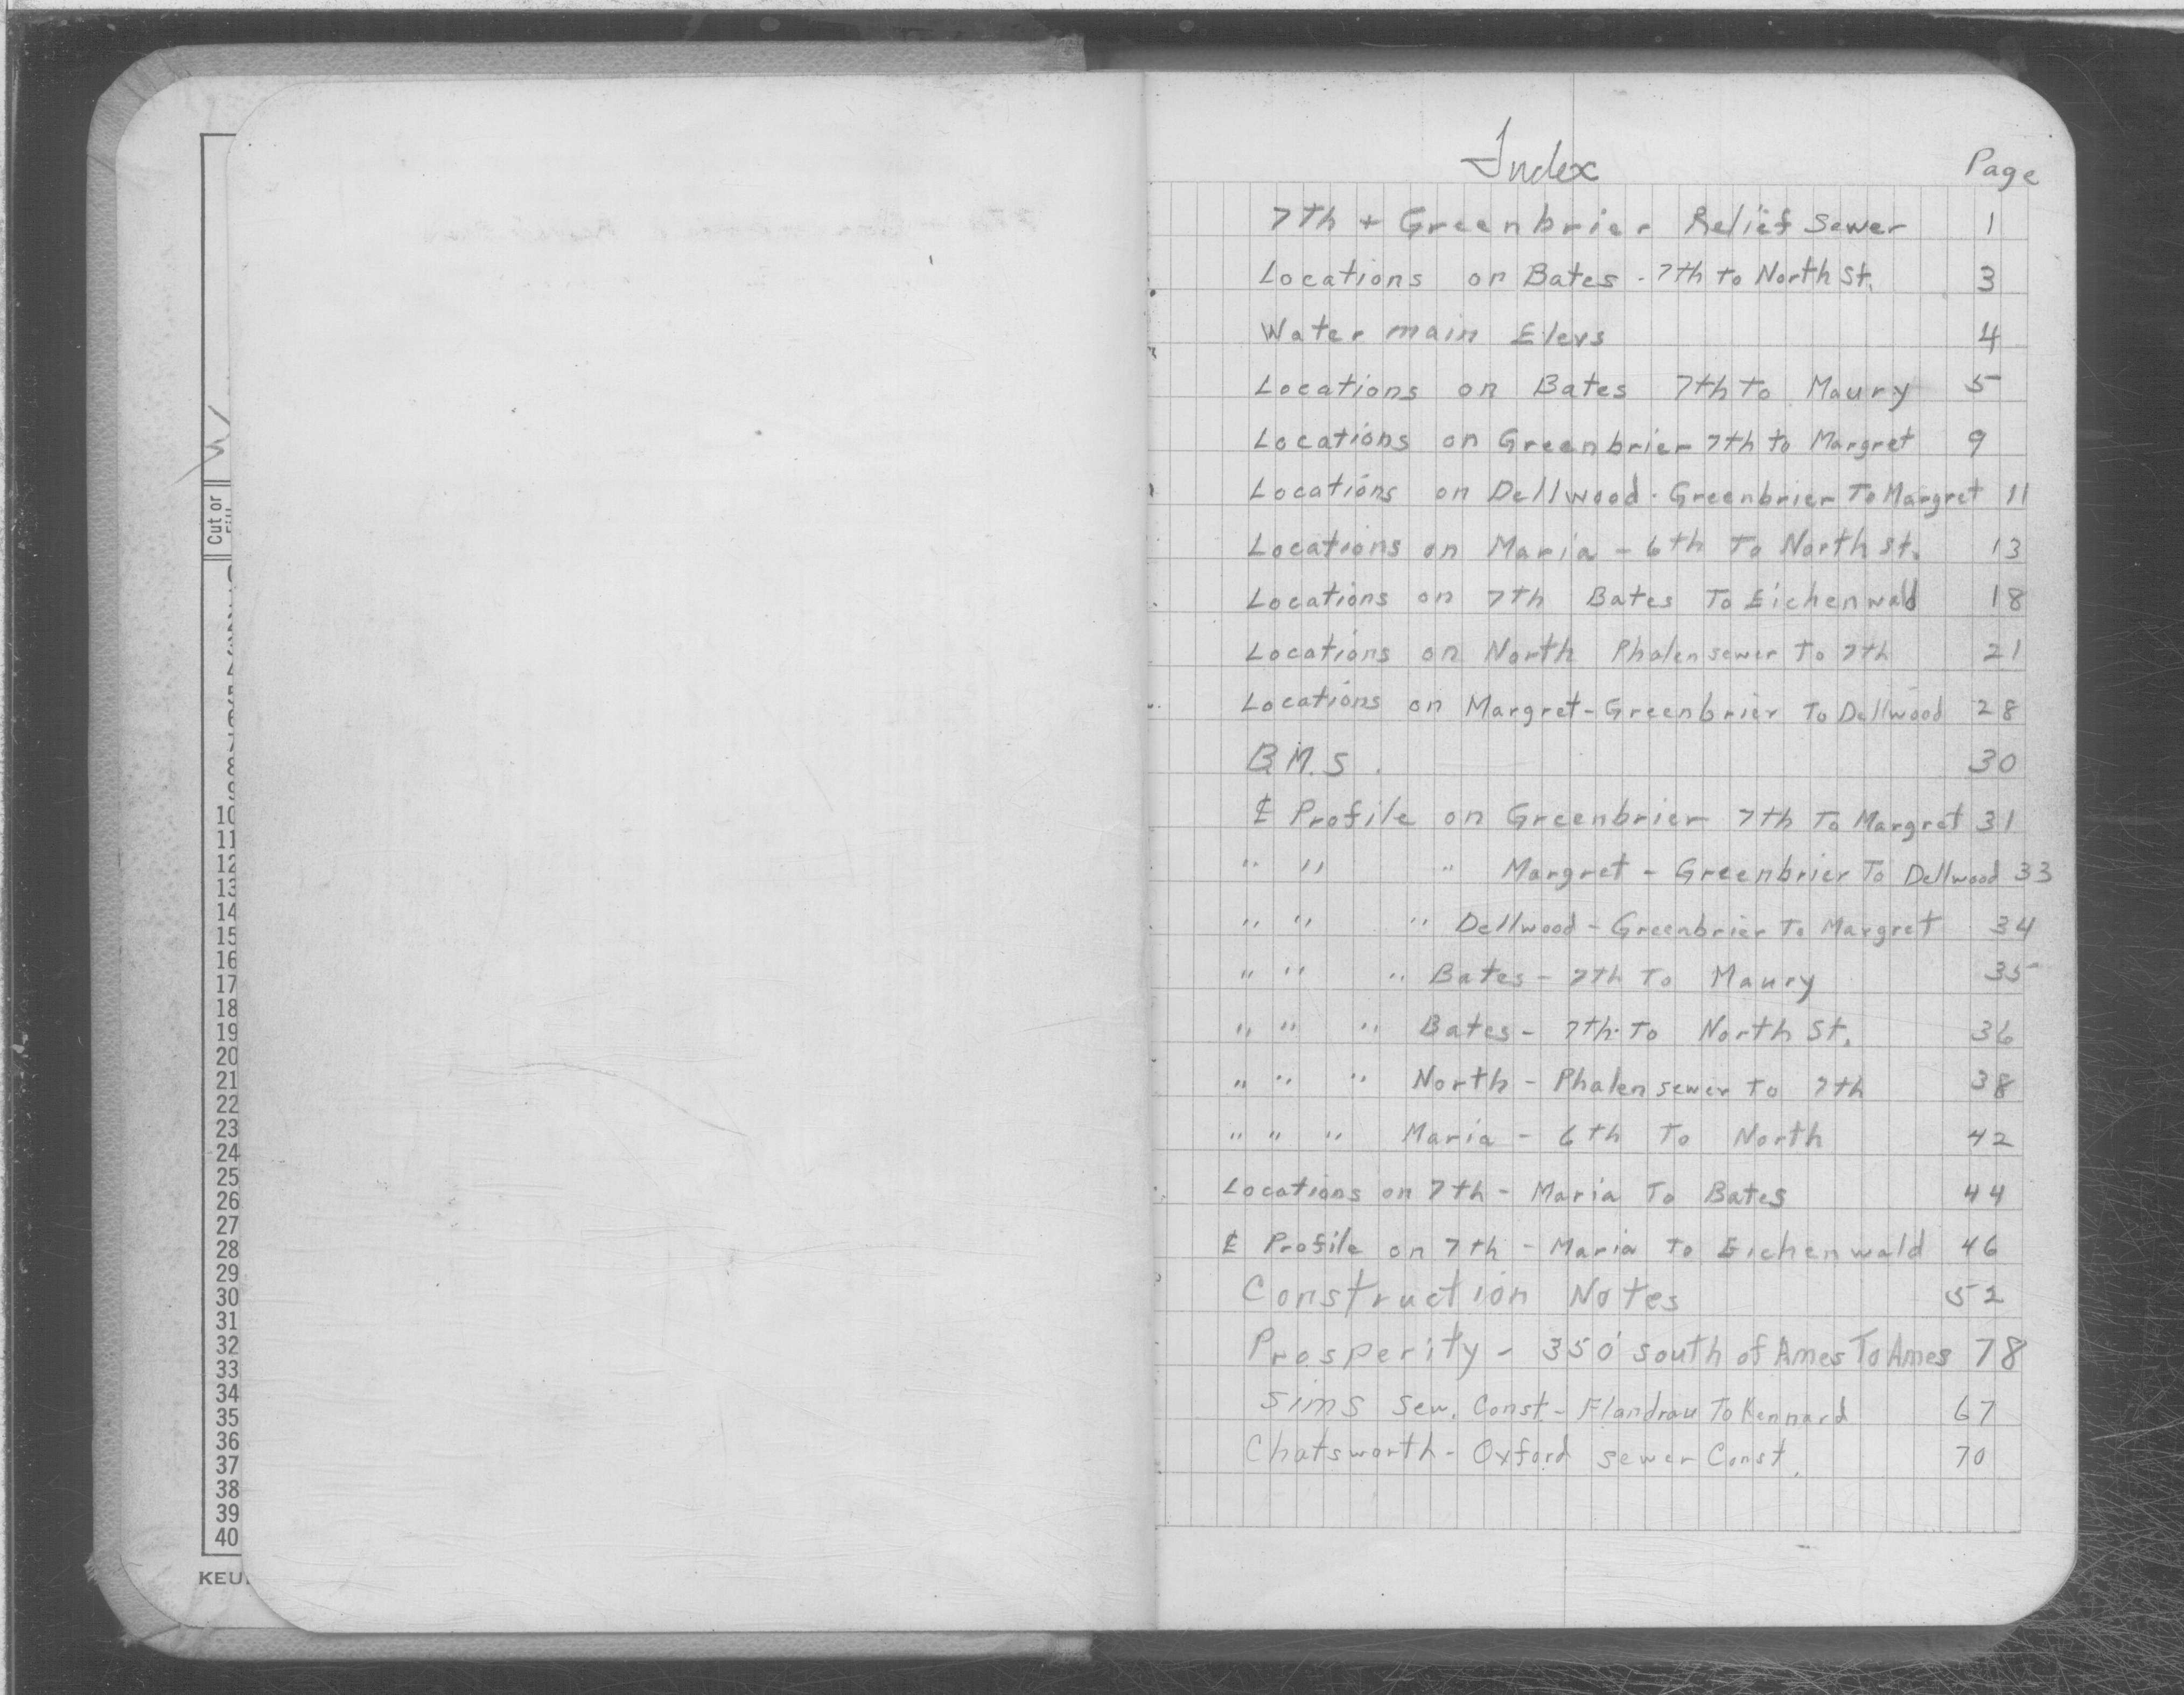 Index Page
7th + Greenbrier Relief Sewer 1
Locations on Bates - 7th To North St. 3
Water main Elevs 4
Locations on Bates 7th To Maury 5
Locations on Greenbrier 7th to Margret 9
Locations on Dellwood - Greenbrier To Margret 11
Locations on Maria - 6th To North St. 13
Locations on 7th Bates To Eichenwald 18
Locations on North Phalen sewer To 7th 21
Locations on Margret - Greenbrier To Dellwood 28
B.M.S. 30
℄ Profile on Greenbrier 7th To Margret 31
" " " Margret - Greenbrier To Dellwood 33
" " " Dellwood - Greenbrier To Margret 34
" " " Bates - 7th To Maury 35
" " " Bates - 7th To North St. 36
" " " North - Phalen sewer To 7th 38
" " " Maria - 6th To North 42
Locations on 7th - Maria To Bates 44
℄ Profile on 7th - Maria To Eichenwald 46
Construction Notes 52
Prosperity - 350' south of Ames To Ames 78
Sims Sew. Const - Flandrau To Kennard 67
Chatsworth - Oxford sewer Const. 70
Cut or
10
11
12
13
14
15
16
17
18
19
20
21
22
23
24
25
26
27
28
29
30
31
32
33
34
35
36
37
38
39
40
KEU